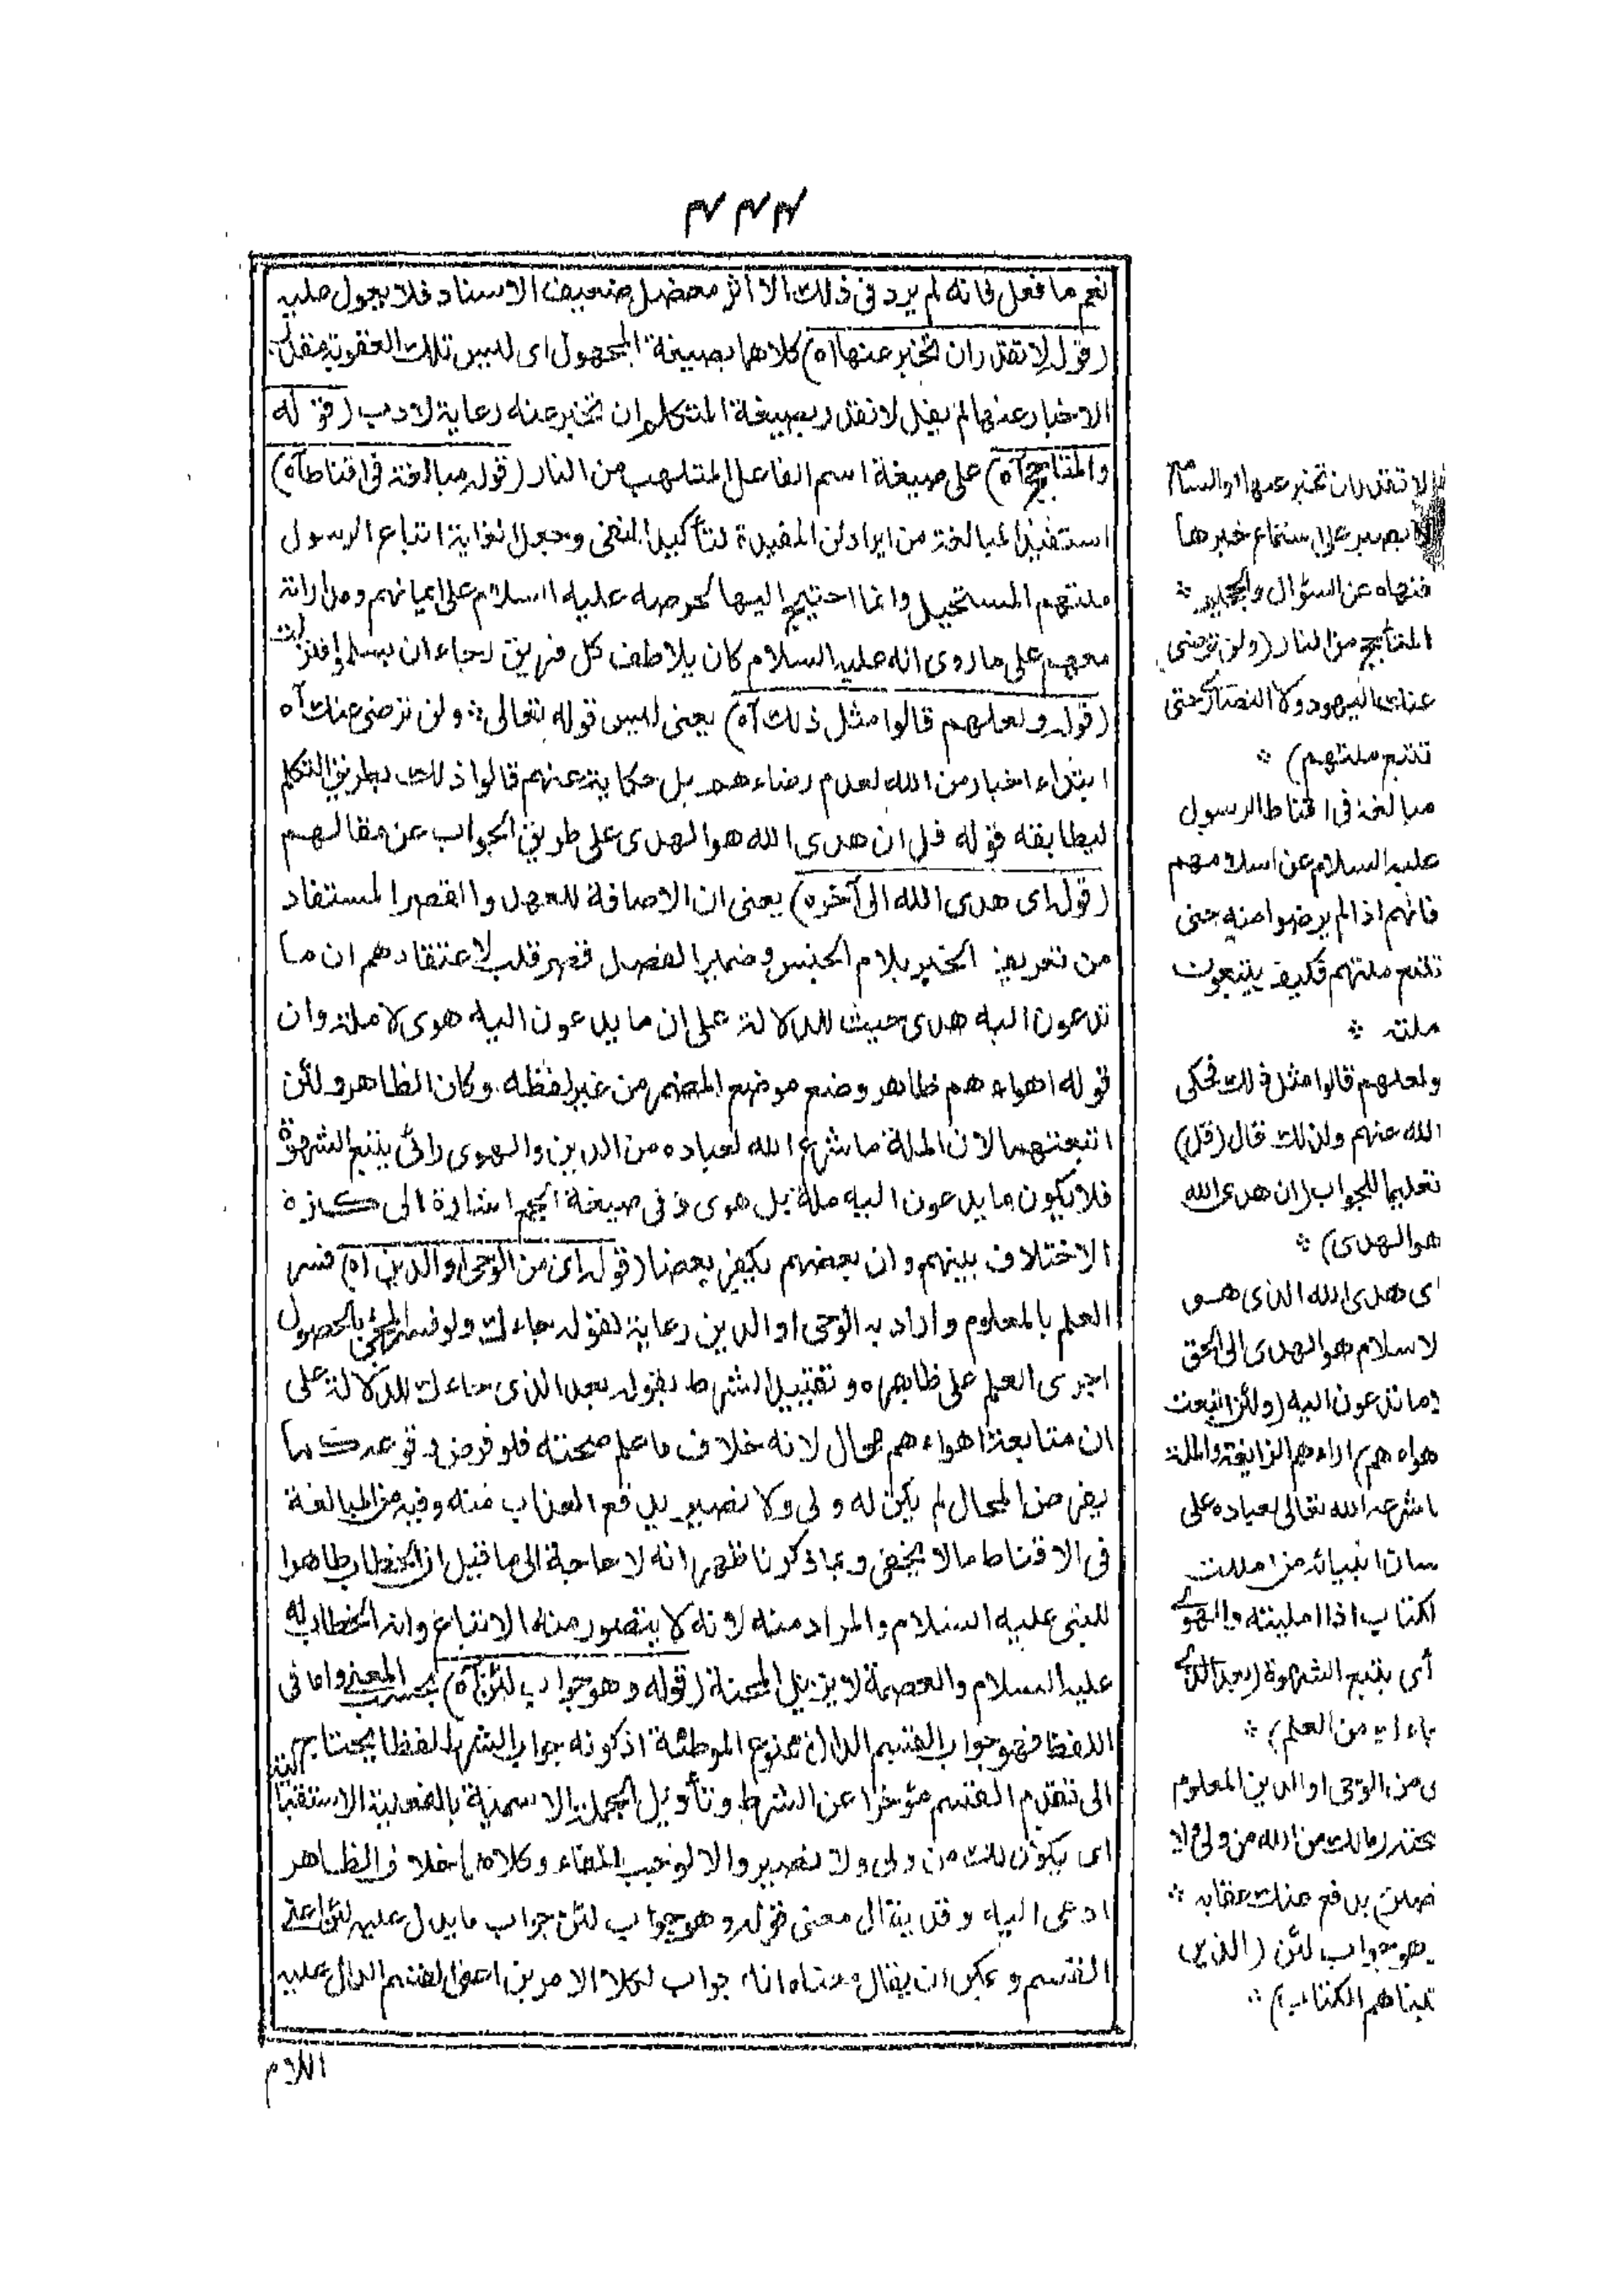 ٣٣٣
نعم ما فعل فانه لم يرد فى ذلك الا اثر معضل ضعيف الاسناد فلا يعول عليه
(قوله لا تقدر ان تخبر عنها اه) كلاهما بصيغة المجهول اى ليس تلك العقوبة مقدر
الاخبار عنها لم يقل لا تقدر بصيغة المتكلم ان تخبر عنه رعاية لادب (قوله
والمتأجج آه) على صيغة اسم الفاعل المتلهب من النار (قوله مبالغة فى اقناط آه)
استفيد المبالغة من ايراد لن المفيدة لتأكيد النفى وجعل الغاية اتباع الرسول
ملتهم المستحيل وانما احتيج اليها لحرصه عليه السلام على ايمانهم ومداراته
معهم على ما روى انه عليه السلام كان يلاطف كل فريق رجاء ان يسلموا فنزلت
(قوله ولعلهم قالوا مثل ذلك آه) يعنى ليس قوله تعالى ولن ترضى عنك آه
ابتداء اخبار من الله لعدم رضاءهم بل حكاية عنهم قالوا ذلك بطريق التكلم
ليطابقه قوله قل ان هدى الله هو الهدى على طريق الجواب عن مقالهم
(قوله اى هدى الله الى آخره) يعنى ان الاضافة للعهد والقصر المستفاد
من تعريف الخبر بلام الجنس وضمير الفصل قصر قلب لاعتقادهم ان ما
تدعون اليه هدى حيث للدلالة على ان ما يدعون اليه هوى لا ملة وان
قوله اهواءهم ظاهر وضع موضع المضمر من غير لفظه وكان الظاهر ولئن
اتبعتهما لان الملة ما شرع الله لعباده من الدين والهوى رائ يتبع الشهوة
فلا يكون ما يدعون اليه ملة بل هوى وفى صيغة الجمع اشارة الى كثرة
الاختلاف بينهم وان بعضهم يكفر بعضا (قوله اى من الوحى او الدين اه) فسر
العلم بالمعلوم واراد به الوحى او الدين رعاية لقوله جاءك ولو فسر المجئ بالحصول
اجرى العلم على ظاهره وتقييد الشرط بقوله بعد الذى جاءك للدلالة على
ان متابعة اهواءهم محال لانه خلاف ما علم صحته فلو فرض وقوعه كما
يفرض المحال لم يكن له ولى ولا نصير يدفع العذاب منه وفيه من المبالغة
فى الاقناط ما لا يخفى وبما ذكرنا ظهر انه لا حاجة الى ما قيل ان الخطاب ظاهرا
للنبى عليه السلام والمراد منه لانه لا يتصور منه الاتباع وانه الخطاب له
عليه السلام والعصمة لا يزيل المحنة (قوله وهو جواب لئن آه) بحسب المعنى واما فى
اللفظ فهو جواب القسم الدال اذ كونه جواب الشرط لفظا يحتاج
الى تقديم القسم مؤخرا عن الشرط وتأويل الجملة الاسمية بالفعلية الاستقبالية
اى يكون لك من ولى ولا نصير والا لوجب الفاء وكلاهما خلاف الظاهر
ادعى اليه وقد يقال معنى قوله وهو جواب لئن جواب ما يدل عليه لئن اعنى
القسم ويمكن ان يقال معناه انه جواب لكلا الامرين اعنى القسم الدال عليه
اللام
لا تقدر ان تخبر عنها او السامع
لا يصبر على استماع خبرها
فنهاه عن السؤال والجحيم
المتأجج من النار (ولن ترضى
عنك اليهود ولا النصارى حتى
تتبع ملتهم)
مبالغة فى اقناط الرسول
عليه السلام عن اسلامهم
فانهم اذا لم يرضوا منه حتى
تتبع ملتهم فكيف يتبعون
ملته
ولعلهم قالوا مثل ذلك فحكى
الله عنهم ولذلك قال (قل)
تعليما للجواب (ان هدى الله
هو الهدى)
اى هدى الله الذى هو
لاسلام هو الهدى الى الحق
وما تدعون اليه (ولئن اتبعت
هواءهم) اراءهم الزايغة والملة
ما شرعه الله تعالى لعباده على
سان انبيائه من امللت
الكتاب اذا امليته والهوى
أى يتبع الشهوة (بعد الذى
جاءك من العلم)
ى من الوحى او الدين المعلوم
صحته (ما لك من الله من ولى ولا
نصير) يدفع عنك عقابه
وهو جواب لئن (الذين
تيناهم الكتاب)